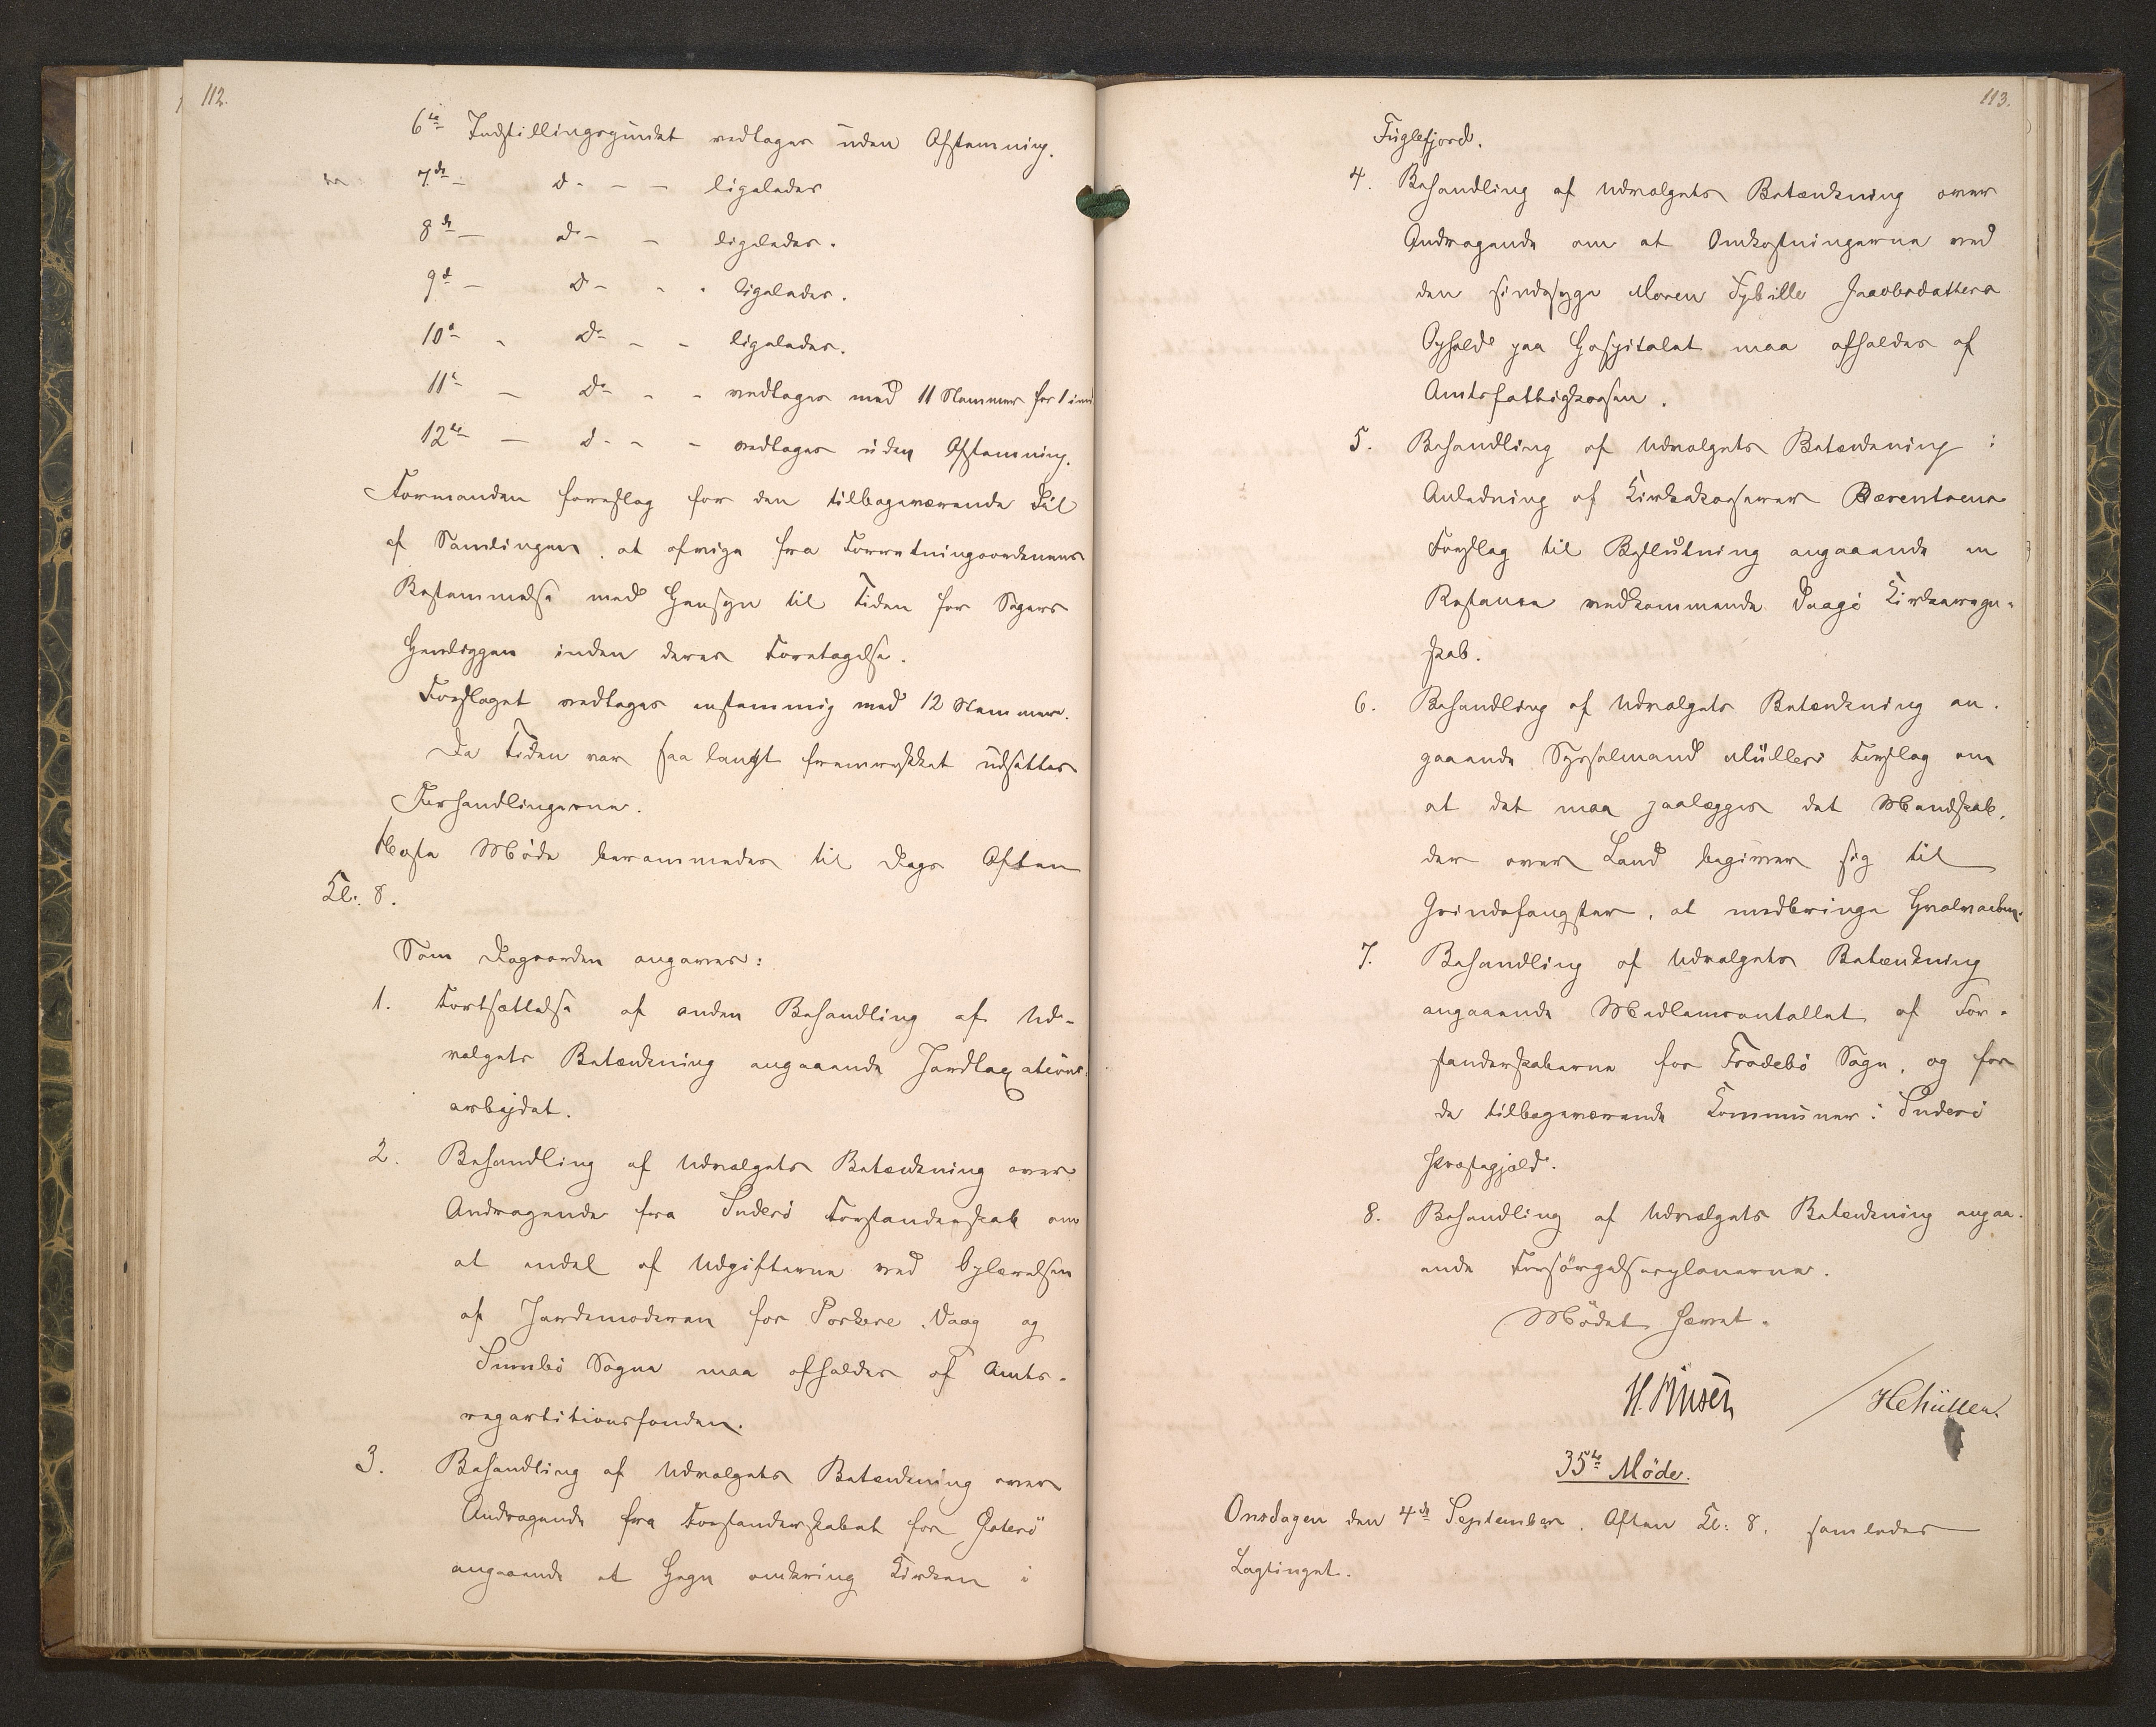 112.
6te Indstillingspunkt vedtages uden Afstemning.
7de - do - - ligeledes
8de - do - - ligeledes.
9de - do - - ligeledes.
10de - do - - ligeledes.
11te - do - - vedtages med 11 Stemmer for 1 imod
12te - do - - vedtages uden Afstemning.
Formanden foreslog for den tilbageværende Del
af Samlingen, at afvige fra Forretningsordenens
Bestemmelse med Hensyn til Tiden for Sagers
Henliggen inden deres Foretagelse.
Forslaget vedtages enstemmig med 12 Stemmer.
Da Tiden var saa langt fremrykket udsattes
Forhandlingerne.
Næste Møde berammedes til Dags Aften
Kl. 8.
Som Dagsorden angaves:
1. Fortsættelse af anden Behandling af Ud-
valgets Betænkning angaaende Jordtaxations-
arbejdet.
2. Behandling af Udvalgets Betænkning over
Andragende fra Suderø Forstanderskab om
at endel af Udgifterne ved Oplærelsen
af Jordemoderen for Porkere, Vaag og
Sumbø Sogne maa afholdes af Amts-
repartitionsfonden.
3. Behandling af Udvalgets Betænkning over
Andragende fra Forstanderskabet for Østerø
angaaende at Hegn omkring Kirken i
113.
Fuglefjord.
4. Behandling af Udvalgets Betænkning over
Andragende om at Omkostningerne ved
den sindssyge Maren Sybille Jacobsdatters
Ophold paa Hospitalet maa afholdes af
Amtsfattigkassen.
5. Behandling af Udvalgets Betænkning i
Anledning af Kirkekasserer Bærentsens
Forslag til Beslutning angaaende en
Restance vedkommende Vaagø Kirkeregn-
skab.
6. Behandling af Udvalgets Betænkning an-
gaaende Sysselmand Müllers Forslag om
at det maa paalægges det Mandskab,
der over Land begiver sig til
Grindefangster, at medbringe Hvalvaaben.
7. Behandling af Udvalgets Betænkning
angaaende Medlemsantallet af For-
standerskaberne for Frodebø Sogn, og for
de tilbageværende Kommuner i Suderø
Præstegjæld.
8. Behandling af Udvalgets Betænkning angaa-
ende Forsørgelsesplanerne.
Mødet hævet.
35te Møde.
Onsdagen den 4de September, Aften Kl. 8. samledes
Lagtinget.